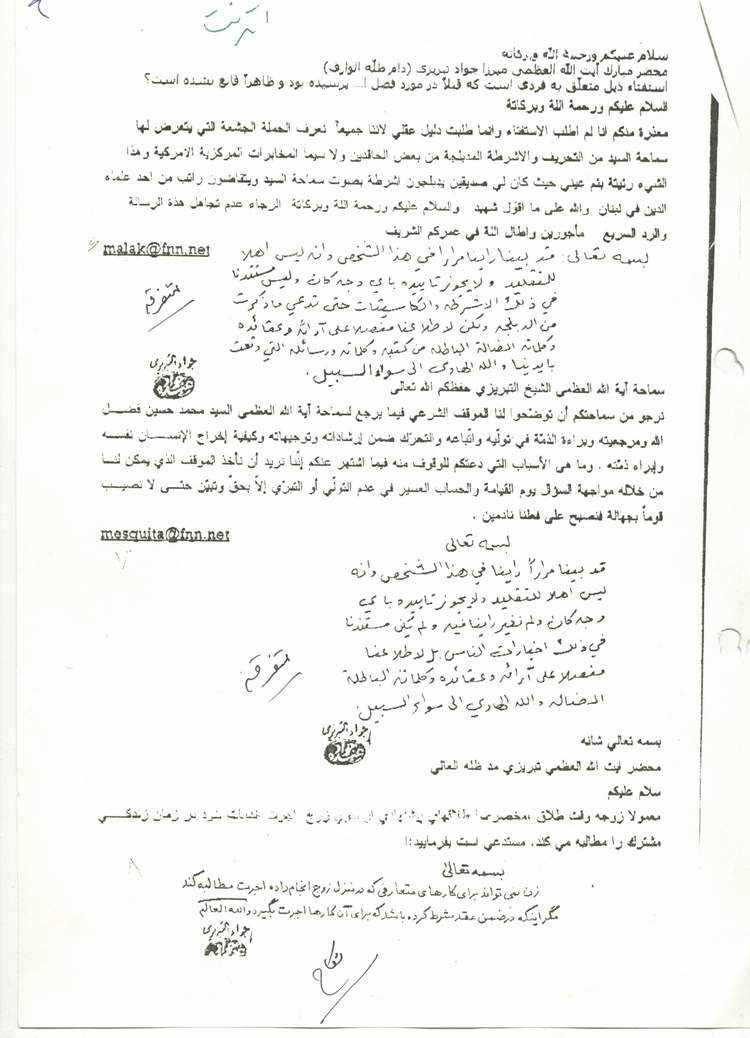 انترنت
سلام علیکم ورحمة الله وبرکاته
محضر مبارک آیت الله العظمی میرزا جواد تبریزی (دام ظلّه الوارف)
استفتاء ذیل متعلّق به فردی است که قبلاً در مورد فضل ا... پرسیده بود و ظاهراً قانع نشده است؟
السلام عليكم ورحمة اللة وبركاتة
معذرة منكم انا لم اطلب الاستفتاء وانما طلبت دليل عقلي لاننا جميعاً نعرف الحملة الجشعة التي يتعرض لها
سماحة السيد من التحريف والاشرطة المدبلجة من بعض الحاقدين ولا سيما المخابرات المركزية الامركية وهذا
الشيء رئيتة بئم عيني حيث كان لي صديقين يدبلجون اشرطة بصوت سماحة السيد ويتقاضون راتب من احد علماء
الدين في لبنان والله على ما اقول شهيد والسلام عليكم ورحمة اللة وبركاتة الرجاء عدم تجاهل هذة الرسالة
والرد السريع مأجورين واطال اللة في عمركم الشريف
malak@fnn.net
بسمه تعالی: قد بيّنا راينا مرارا في هذا الشخص وانه ليس اهلا
للتقليد ولا يجوز تاييده باي وجه كان وليس مستندنا
في ذلك الاشرطة والكاسيتات حتى تدعي ما ذكرت
من الدبلجه ولكن لاطلاعنا مفصلا على آرائه وعقائده
وكلماته الضالة الباطله من كتبه وكلماته ورسائله التي وقعت
بايدينا والله الهادي الى سواء السبيل.
متفرقه
جواد التبريزي
سماحة آية الله العظمى الشيخ التبريزي حفظكم الله تعالى
نرجو من سماحتكم أن توضحوا لنا الموقف الشرعي فيما يرجع لسماحة آية الله العظمى السيد محمد حسين فضل
الله ومرجعيته وبراءة الذمّة في تولّيه واتّباعه والتحرّك ضمن إرشاداته وتوجيهاته وكيفية إخراج الإنسان نفسه
وإبراء ذمّته . وما هى الأسباب التي دعتكم للوقوف منه فيما اشتهر عنكم إنّنا نريد أن نأخذ الموقف الذي يمكن لنا
من خلاله مواجهة السؤال يوم القيامة والحساب العسير في عدم التولّي أو التبرّي إلاّ بحقّ وتبيّن حتى لا نصيب
قوماً بجهالة فنصبح على فعلنا نادمين .
mesquita@fnn.net
بسمه تعالی
قد بيّنا مراراً راينا في هذا الشخص وانه
ليس اهلا للتقليد ولا يجوز تاييده باي
وجه كان ولم نغير راينا فيه ولم يكن مستندنا
في ذلك اخبارات الناس بل لاطلاعنا
مفصلا على آرائه وعقائده وكلماته الباطلة
الضاله والله الهادي الى سواء السبيل.
متفرقه
جواد التبريزي
بسمه تعالي شانه
محضر آيت الله العظمي تبريزي مد ظله العالي
سلام عليكم
معمولا زوجه وقت طلاق ،مخصوصا طلاقهاي پيشنهادي از سوي زوج، اجرت خدمات خود در زمان زندگي
مشترك را مطالبه مي كند، مستدعي است بفرماييد:!
بسمه تعالی
زن نمی تواند برای کارهای متعارفی که در منزل زوج انجام داده اجرت مطالبه کند
مگر اینکه در ضمن عقد شرط کرده باشد که برای آن کارها اجرت بگیرد والله العالم
جواد التبريزي
نکاح